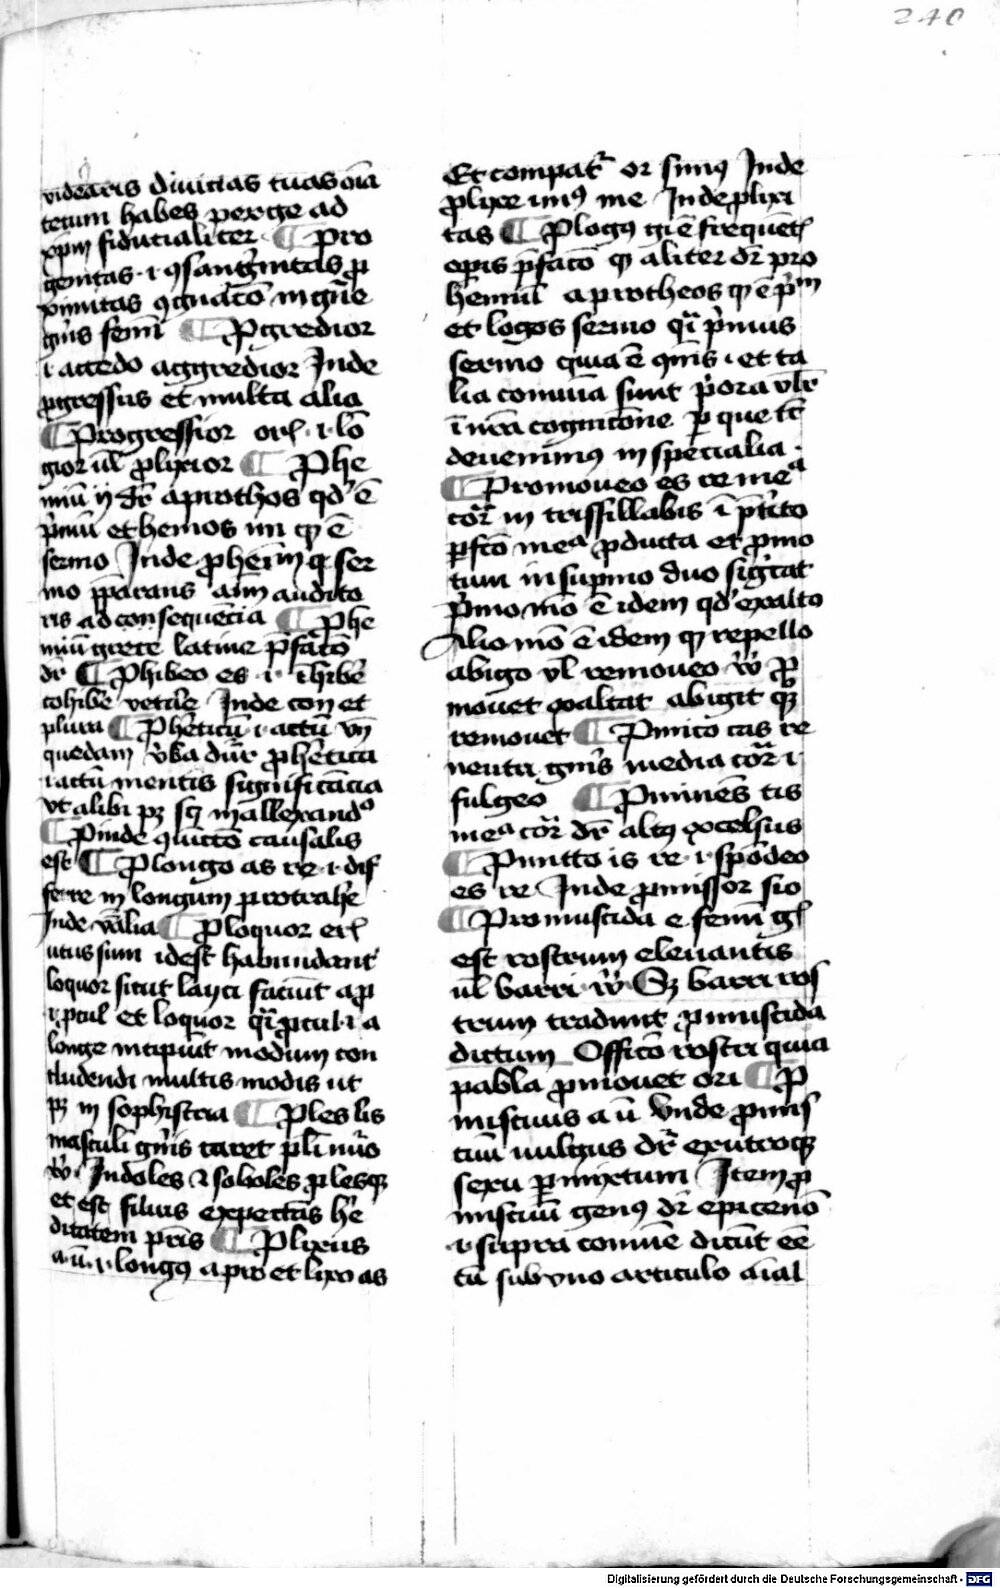 240
videaris divicias tuas oīa
tecum habes perge ad
xp̄m fiducialiter ¶ Pro
genitas .i. ꝯsang̃nitas ꝓ
ximitas ꝯgnatō in gñe
gñis femī ¶ Pgredior
.i. accedo aggredior Inde
ꝓgressus et multa alia
¶ Progressior orꝭ .i. lō
gior ul̄ ꝓlixior ¶ Phe
miū ij dr̄ a prothos qd' ē
p̄mū et hemos mi qd ē
sermo Inde ꝓhemiū qi ser
mo p̄parans aīm audito
ris ad consequēcia ¶ Phe
miū grece latine p̄fatō
dr̄ ¶ Phibeo es .i. īhibe
cohibe vetare Inde con et
plura ¶ Pheticū .i. actū vn̄
quedam v̄ba dūr ꝓhetica
.i. actū mentis significācia
vt alibi pꝫ sꝫ in allexandº
¶ Pinde ꝯiūctō causalis
est ¶ Plongo as re .i. dif
ferre in longum protrahe
Inde v̄alia ¶ Ploquor erꝭ
utus sum idest habundant
loquor sicut layci faciūt a ꝓ
.i. ꝓcul et loquor qī ꝓcul .i. a
longe incipiūt modum con
cludendi multis modis ut
pꝫ in sophistria ¶ Ples lis
masculī gñis caret pl̄i nūo
v̄ꝰ Indoles ⁊ soboles ꝓlesqꝫ
et est filius expectās hē
ditatem pr̄is ¶ Plixus
a ū .i. longꝰ a pro et lixo as
Et compat̄ or simꝰ Inde
ꝓlixe imꝰ me Inde ꝓlixi
tas ¶ Plogꝰ gi ē frequēt̄
operis p̄fatō qd aliter dr̄ pro
hemiū a protheos qd ē p̄m
et logos sermo qī p̄mus
sermo quia ē qm̄s .i. et ta
lia comūia sunt p̄ora vl̄r
ī nr̄a cognicōne per que tc̄
devenimꝰ in specialia
¶ Promoueo es re meª
cor̄ in trissillabis ī p̄tito
p̄fcō meª ꝓducta et ꝓmo
tum in supino duo sig̃cat
p̄mo mō ē idem qd' exalto
Alio mō ē idem qd repello
abigo vl̄ remoueo v̄ꝰ ꝓ
mouet exaltat abigit qꝫ
remouet ¶ Pmico cas re
neutri gñis media cor̄ .i.
fulgeo ¶ Pminēs tis
meª cor̄ dr̄ altꝰ excelsus
¶ Pmitto is re .i. spōdeo
es re Inde ꝓmissor sio
¶ Promuscida e femī gꝭ
est rostrum elevantis
ul̄ barri v̄ꝰ Sꝫ barri ros
trum tradunt ꝓmuscida
dictum Officō rostri quia
pabla ꝓmouet ori ¶ P
miscuus a ū Vnde ꝓmis
cuū vulgus dr̄ ex utroqꝫ
sexu ꝑmixtum Item ꝓ
miscuū genꝰ dr̄ epicenō
.i. supra comūe dicūt eē
cū sub vno articulo aīal
Digitalisierung gefördert durch die Deutsche Forschungsgemeinschaft - DFG